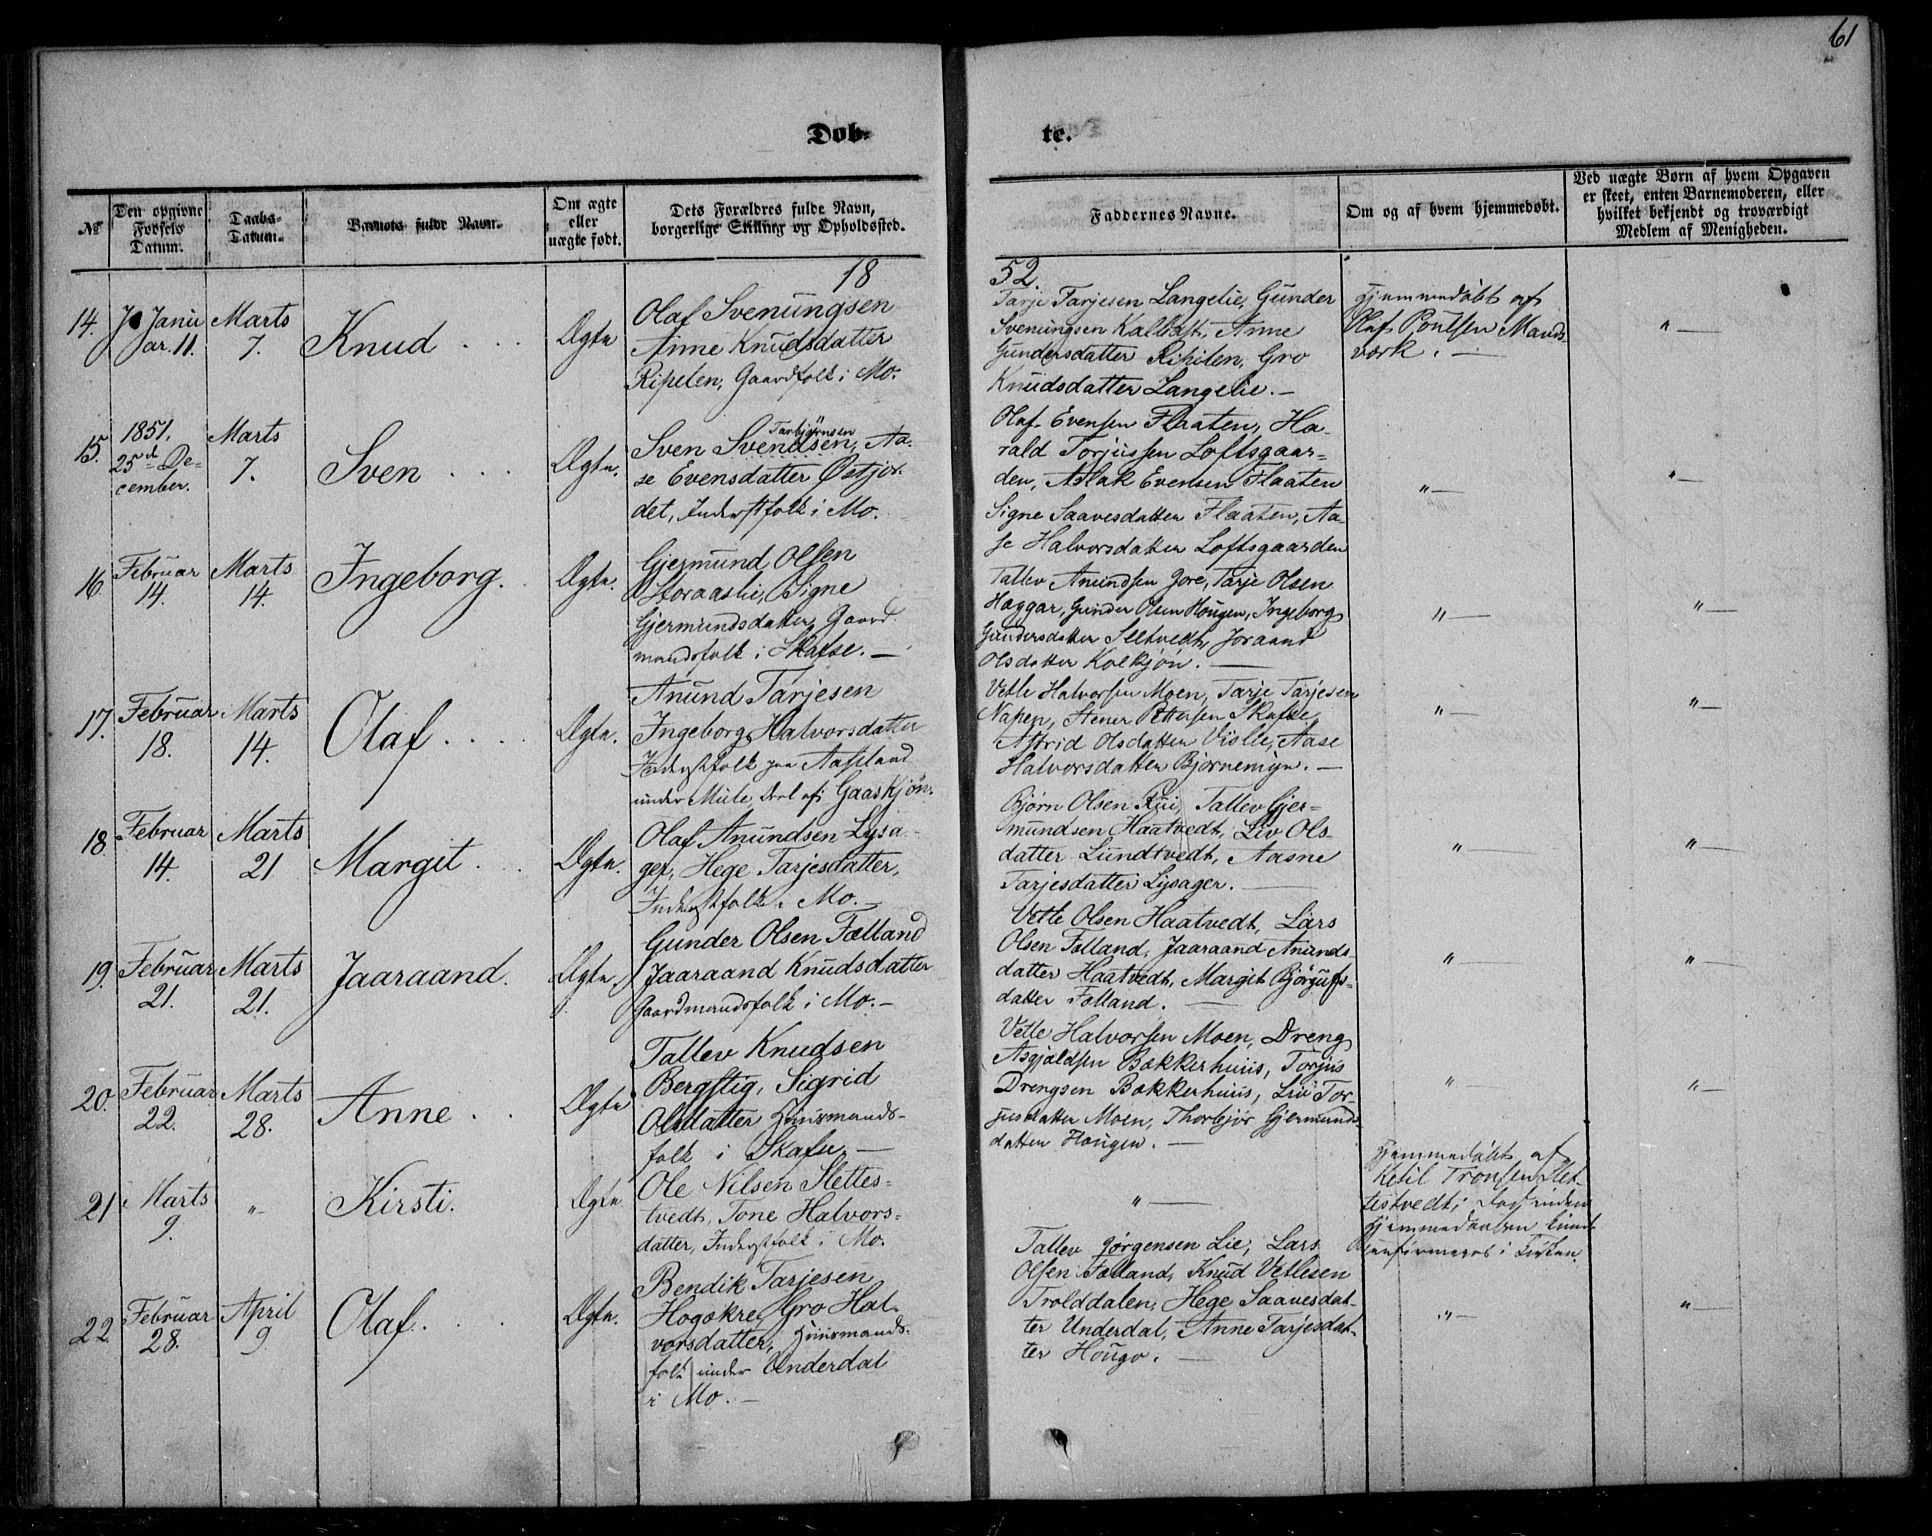 61
Døb- te.
№
Den opgivne Fødsels Datum.
Daabs-Datum.
Barnets fulde Navn.
Om ægte eller uægte født.
Dets Forældres fulde Navn, borgerlige Stilling og Opholdssted.
Faddernes Navne.
Om og af hvem hjemmedøbt.
Ved uægte Børn af hvem Opgaven er skeet, enten Barnemoderen, eller hvilket bekjendt og troværdigt Medlem af Menigheden.
18 52.
14.
Januar. 11.
Marts 7.
Knud
Ægte
Olaf Svenungsen
Anne Knudsdatter
Ripelen, Gaardfolk i Mo.
Tarje Tarjesen Langelie, Gunder
Svenungsen Kalbat, Anne
Gundersdatter Ripilen, Gro
Knudsdatter Langelie. —
Hjemmedøbt af
Olaf Poulsen Mands
værk. —
" —
15.
1851.
25d De-
cember.
Marts 7.
Sven
Ægte.
Torbjørnsen
Sven Svendsen, Aa-
se Evensdatter Østjor-
det, Inderstfolk i Mo.
Olaf Evensen Flaaten, Ha-
rald Torjussen Loftsgaar-
den, Aslak Evensen Flaaten
Signe Saavesdatter Flaaten, Aa-
se Halvorsdatter Loftsgaarden
" —
" —
16.
Februar 14.
Marts 14.
Ingeborg.
Ægte.
Gjermund Olsen
Storaasli, Signe
Gjermundsdatter, Gaard
mandsfolk i Skafse. —
Tallev Anundsen Gore, Tarje Olsen
Hæggar, Gunder Olsen Hougen, Ingeborg
Gundersdatter Seltvedt, Joraand
Olsdatter Kolkjøn. —
" —
" —
17.
Februar 18.
Marts 14.
Olaf
Ægte.
Anund Tarjesen
Ingeborg Halvorsdatter
Inderstfolk paa Aasland
under Mule, Deel af Gaaskjøn.
Vetle Halvorsen Moen, Tarje Tarjesen
Napen, Stener Pettersen Skafse
Astrid Olsdatter Violle, Aase
Halvorsdatter Bjørnemyr. —
" —
" —
18.
Februar 14.
Marts 21
Margit
Ægte.
Olaf Anundsen Lysa-
ger, Hege Tarjesdatter,
Inderstfolk i Mo. —
Bjørn Olsen Rui, Tallev Gjer-
mundsen Haatvedt, Liv Ols-
datter Lundtvedt, Aasne
Tarjesdatter Lysager. —
" —
" —
19.
Februar 21.
Marts 21.
Jaaraand.
Ægte.
Gunder Olsen Fælland
Jaaraand Knudsdatter
Gaardmandsfolk i Mo. —
Vetle Olsen Haatvedt, Lars
Olsen Følland, Jaaraand Anunds
datter Haatvedt, Margit Bjørgufs-
datter Følland. —
" —
" —
20.
Februar 22.
Marts 28.
Anne
Ægte
Tallev Knudsen
Bergstig, Sigrid
Olsdatter Huusmands-
folk i Skafse —
Vetle Halvorsen Moen, Dreng
Asgjøldsen Bakkerhuus, Torjus
Drengsen Bakkerhuus, Liv Tor-
jusdatter Moen, Thorbjør Gjermunds
datter Hougen. —
" —
" —
21
Marts 9.
" —
Kirsti.
Ægte
Ole Nilsen Slettes-
tvedt, Tone Halvors-
datter, Inderstfolk i Mo.
" —
Hjemmedøbt af
Ketil Tronsen Slet-
testvedt;
Hjemmedaaben
i Kirken
22
Februar 28.
April 9
Olaf.
Ægte.
Bendik Tarjesen
Hogskre, Gro Hal-
vorsdatter, Huusmands-
folk under Underdal
i Mo. —
Tallev Jørgensen Lie, Lars
Olsen Fælland, Knud Vetlesen
Trolddalen, Hege Saavesdat-
ter Underdal, Anne Tarjesdat-
ter Hougo. —
" —
" —